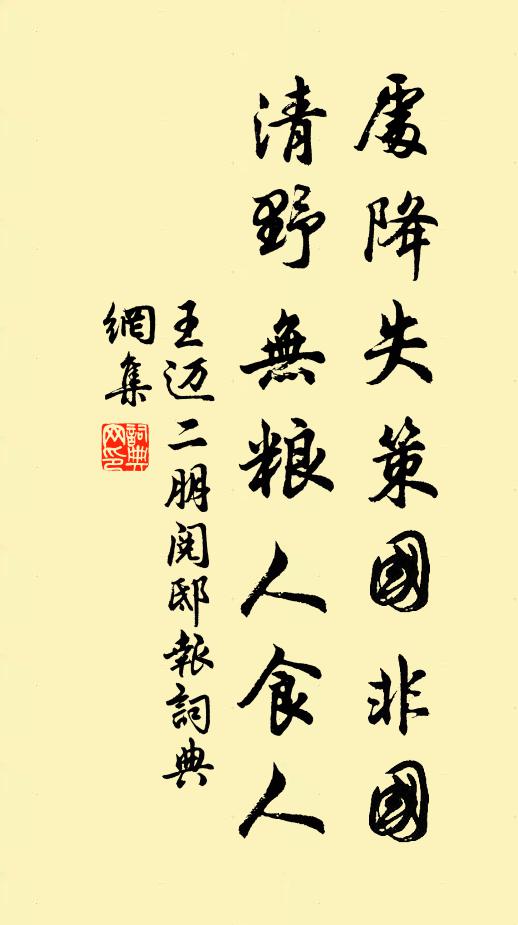 處降失策國非國
清野無粮人食人
王迈二朋阅邸報詞典
網集
詞典網印